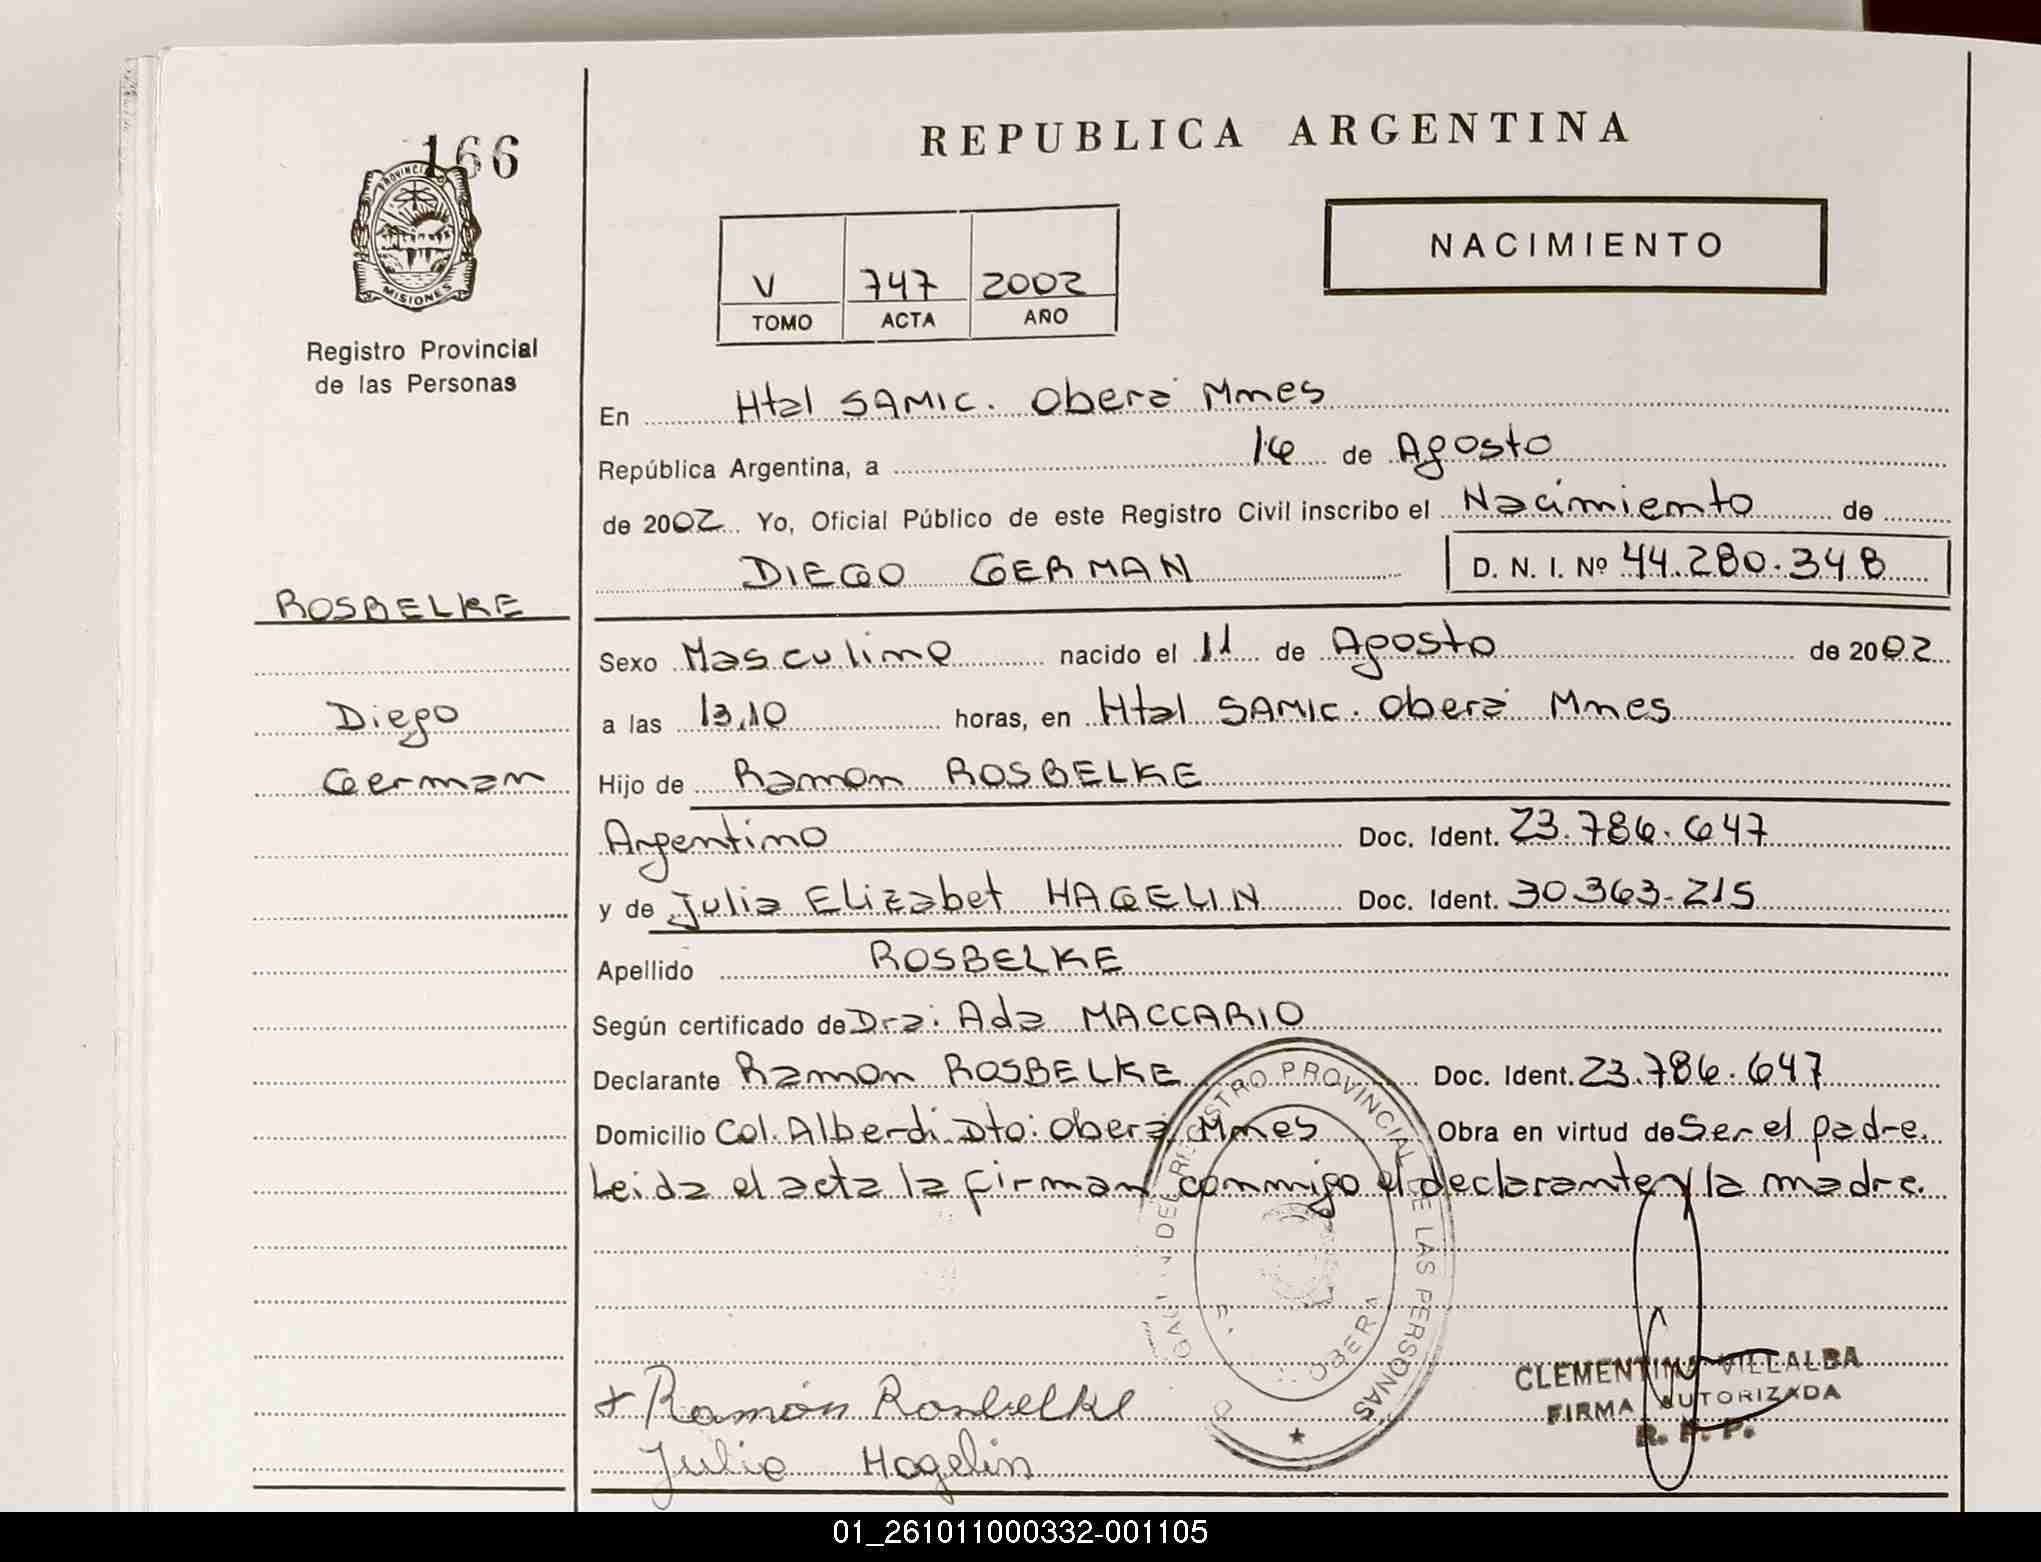 166
PROVINCIA D
MISIONES
Registro Provincial
de las Personas
REPUBLICA ARGENTINA
NACIMIENTO
V 747 2002
TOMO ACTA AÑO
En Htal SAMIC. Oberá Mnes
República Argentina, a 16 de Agosto
de 2002 Yo, Oficial Público de este Registro Civil inscribo el Nacimiento de
DIEGO GERMAN D. N. I. Nº 44.280.348
ROSBELKE
Sexo Masculino nacido el 11 de Agosto de 2002
Diego
a las 13,10 horas, en Htal SAMIC. Oberá Mnes
German
Hijo de Ramon ROSBELKE
Argentino Doc. Ident. 23.786.647
y de Julia Elizabet HAGELIN Doc. Ident. 30.363.215
Apellido ROSBELKE
Según certificado de Dra: Ada MACCARIO
Declarante Ramon ROSBELKE Doc. Ident. 23.786.647
Domicilio Col. Alberdi Dto: Oberá Mnes Obra en virtud de Ser el padre.
Leida el acta la firman conmigo el declarante y la madre.
DEL REGISTRO PROVINCIAL DE LAS PERSONAS
OBERA
CLEMENTINA VILLALBA
FIRMA AUTORIZADA
R. P. P.
+ Ramón Rosbelke
Julia Hagelin
01_261011000332-001105